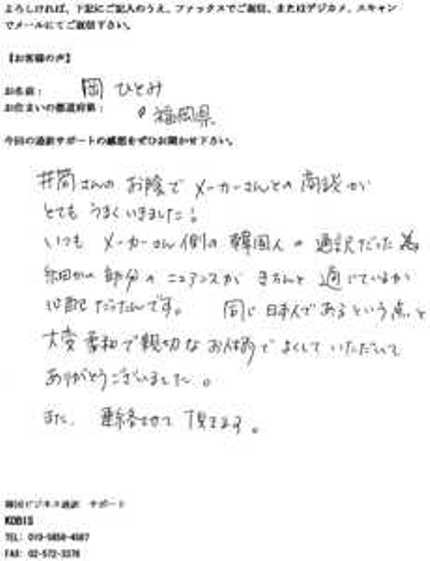 よろしければ、下記にご記入のうえ、ファックスでご返信、またはデジカメ、スキャン
でメールにてご返信下さい。
【お客様の声】
お名前： 岡 ひとみ
お住まいの都道府県： 福岡県
今回の通訳サポートの感想をぜひお聞かせ下さい。
井筒さんのお陰でメーカーさんとの商談が
とてもうまくいきました！
いつも メーカーさん側の韓国人の通訳だった為
細かい部分のニュアンスがきちんと通じているか
心配だったんです。 同じ日本人であるという点と
大変柔和で親切なお人柄でよくしていただいて
ありがとうございました。
また、連絡させて頂きます。
韓国ビジネス通訳 サポート
KOBIS
TEL: 010-5858-4587
FAX: 02-572-3378